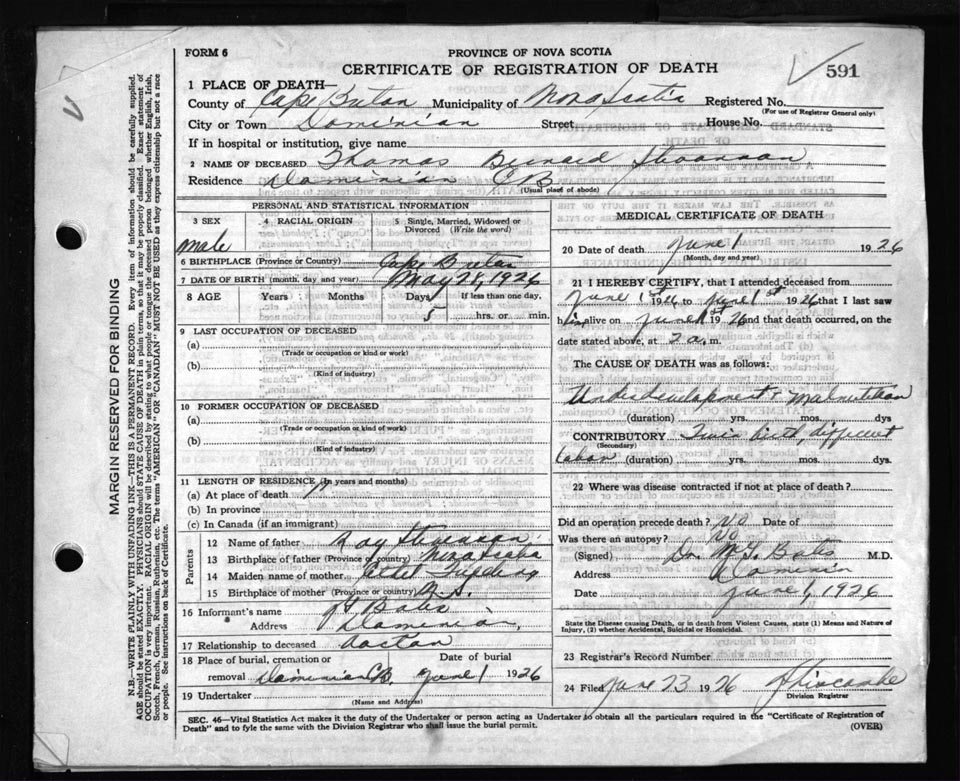 FORM 6
PROVINCE OF NOVA SCOTIA
CERTIFICATE OF REGISTRATION OF DEATH
591
1 PLACE OF DEATH—
County of Cape Breton Municipality of Nova Scotia Registered No.
(For use of Registrar General only)
City or Town Dominion Street House No.
If in hospital or institution, give name
2 NAME OF DECEASED Thomas Bernard
Residence Dominion C B
(Usual place of abode)
PERSONAL AND STATISTICAL INFORMATION
3 SEX 4 RACIAL ORIGIN 5 Single, Married, Widowed or Divorced (Write the word)
male
6 BIRTHPLACE (Province or Country) Cape Breton
7 DATE OF BIRTH (month, day and year) May 28, 1926
8 AGE Years Months Days If less than one day,
5 hrs. or min.
9 LAST OCCUPATION OF DECEASED
(a)
(Trade or occupation or kind or work)
(b)
(Kind of industry)
10 FORMER OCCUPATION OF DECEASED
(a)
(Trade or occupation or kind of work)
(b)
(Kind of industry)
11 LENGTH OF RESIDENCE (in years and months)
(a) At place of death
(b) In province
(c) In Canada (if an immigrant)
Parents
12 Name of father Roy
13 Birthplace of father (Province or country) Nova Scotia
14 Maiden name of mother
15 Birthplace of mother (Province or country) N.S.
16 Informant's name Bates
Address Dominion
17 Relationship to deceased doctor
18 Place of burial, cremation or Date of burial
removal Dominion C.B. June 1 1926
19 Undertaker
(Name and Address)
MEDICAL CERTIFICATE OF DEATH
20 Date of death June 1 1926
(Month, day and year)
21 I HEREBY CERTIFY, that I attended deceased from
June 1st 1926 to June 1st 1926 that I last saw
him alive on June 1st 1926 and that death occurred, on the
date stated above, at 2 a. m.
The CAUSE OF DEATH was as follows:
Underdevelopment & Malnutrition
(duration) yrs. mos. dys
CONTRIBUTORY Twin birth, difficult
(Secondary)
labor (duration) yrs. mos. dys.
22 Where was disease contracted if not at place of death?
Did an operation precede death? No Date of
Was there an autopsy? No
(Signed) Dr. Bates M.D.
Address Dominion
Date June 1, 1926
State the Disease causing Death, or in death from Violent Causes, state (1) Means and Nature of
Injury, (2) whether Accidental, Suicidal or Homicidal.
23 Registrar's Record Number
24 Filed June 23 1926
Division Registrar
SEC. 46—Vital Statistics Act makes it the duty of the Undertaker or person acting as Undertaker to obtain all the particulars required in the "Certificate of Registration of
Death" and to fyle the same with the Division Registrar who shall issue the burial permit. (OVER)
MARGIN RESERVED FOR BINDING
N.B.—WRITE PLAINLY WITH UNFADING INK—THIS IS A PERMANENT RECORD. Every item of information should be carefully supplied.
AGE should be stated EXACTLY. PHYSICIANS should STATE CAUSE OF DEATH in plain terms, that it may be properly classified. Exact statement of
OCCUPATION is very important. RACIAL ORIGIN will be described by stating to what people or tongue the deceased person belonged whether English, Irish,
Scotch, French, German, Russian, Ruthenian, etc. The terms "AMERICAN" OR "CANADIAN" MUST NOT BE USED as they express citizenship but not a race
or people. See instructions on back of Certificate.